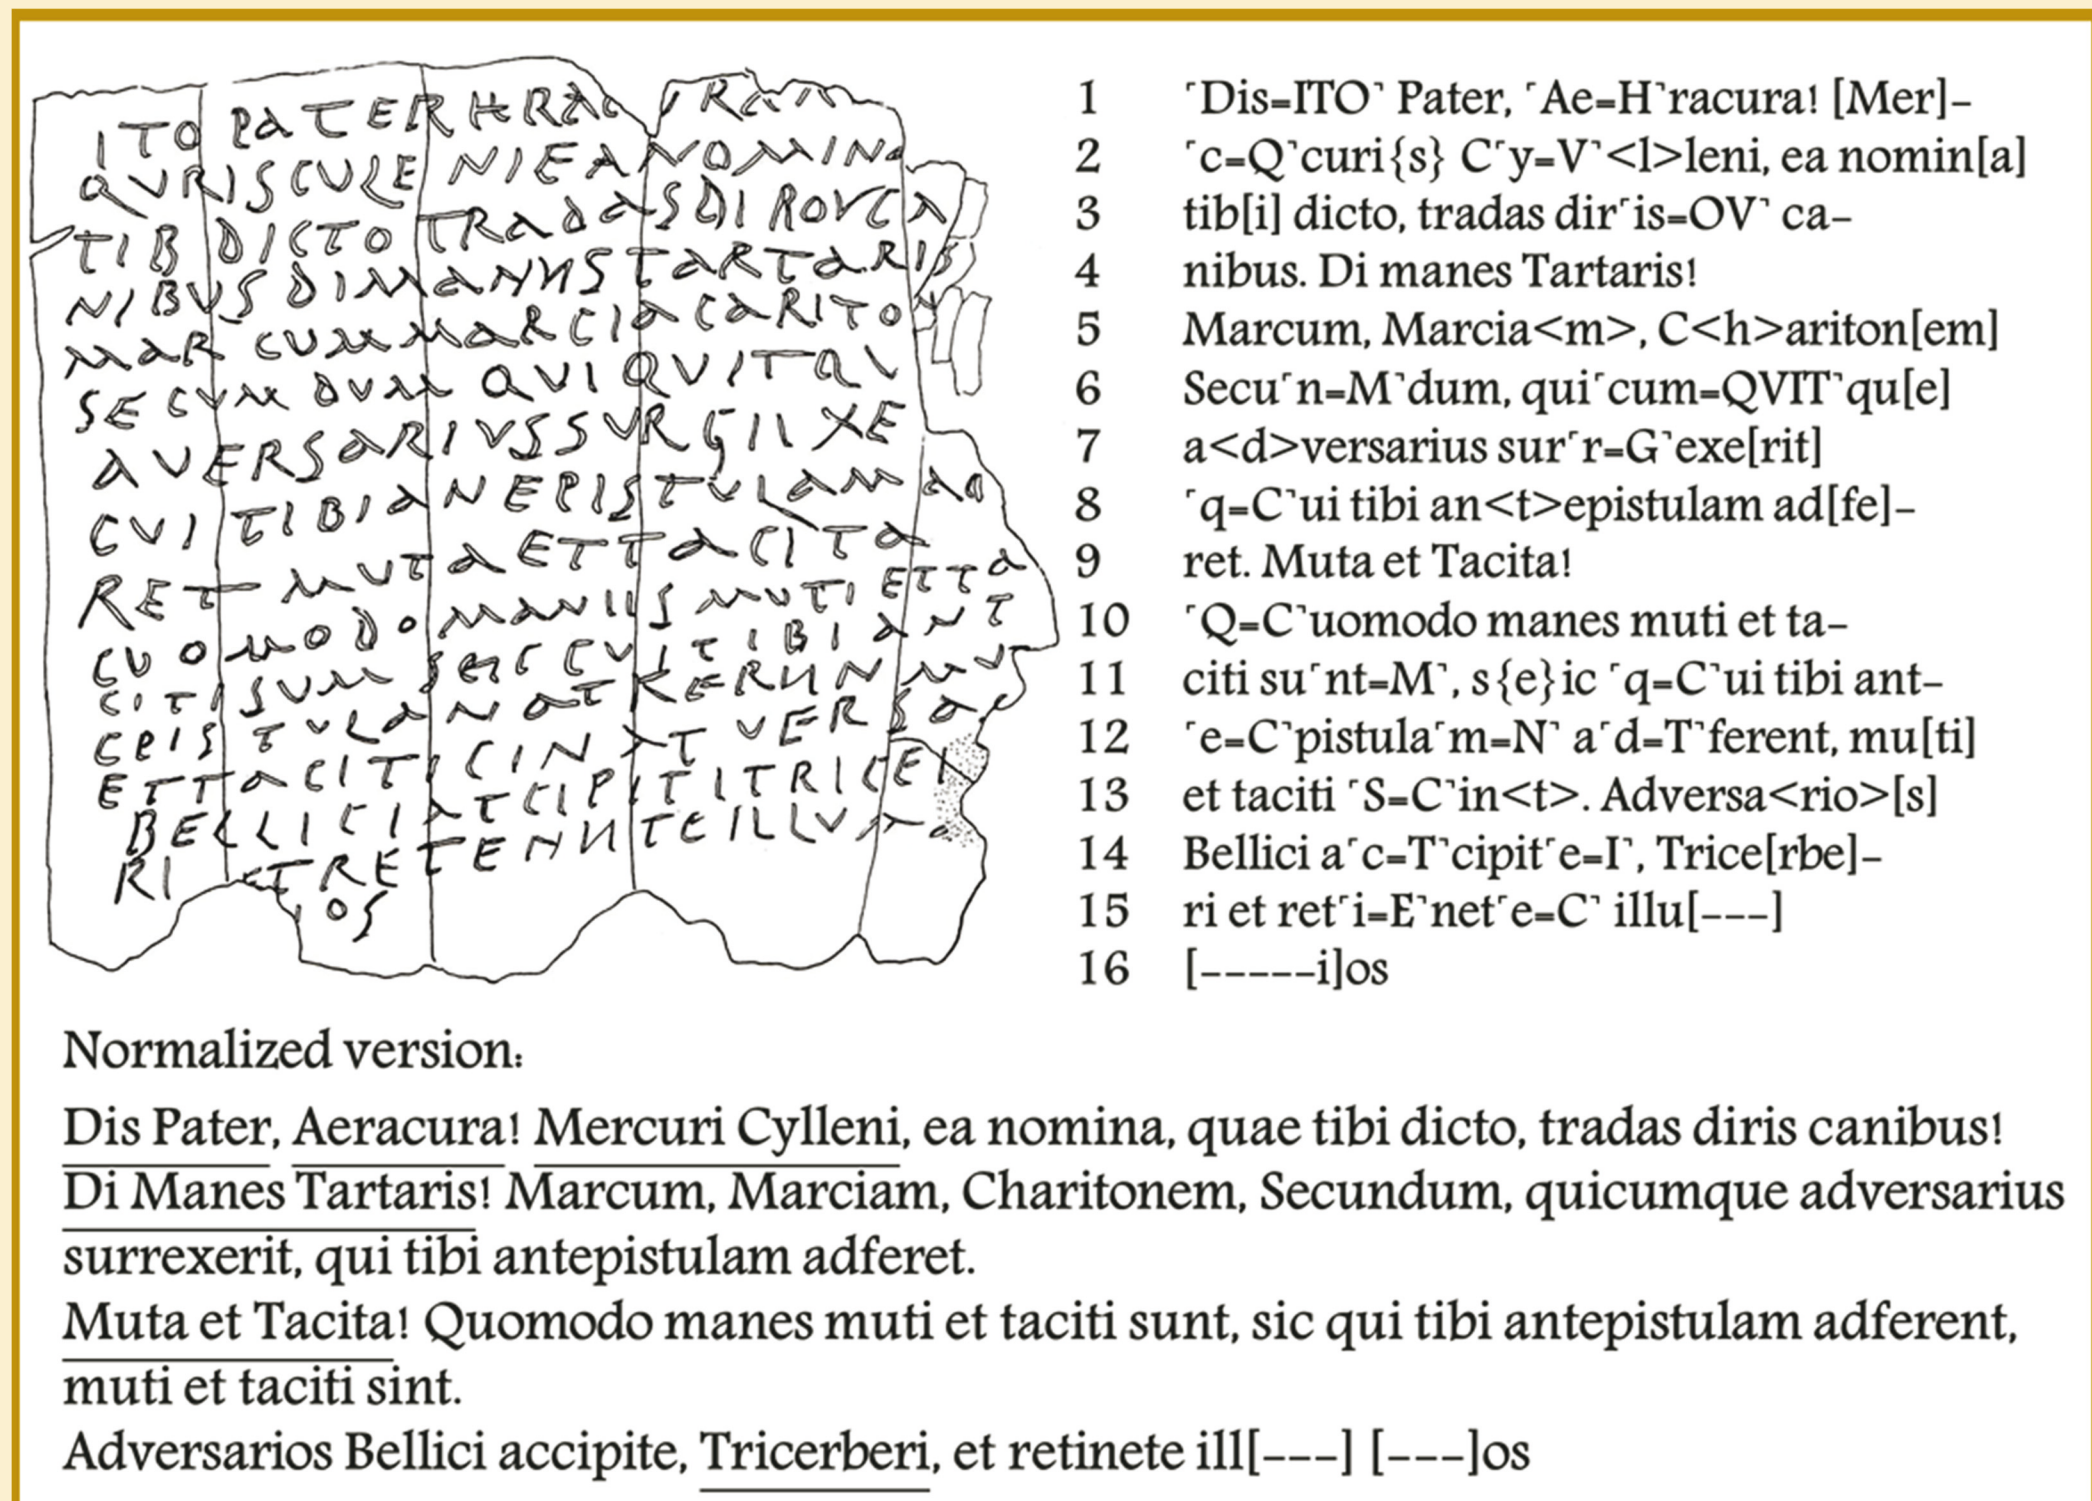 ITO PATERHRACVRA
QVRISCULENIEANOMINA
TIB DICTO TRADASDIROVCA
NIBVSDIMANIISTARTARIS
MARCUMMARCIACARITON
SECVMDVM QVIQVITQV
AVERSARIVSSVRGIIXE
CVI TIBIANEPISTVLAMAD
RET MUTAETTACITA
CVOMODOMANIISMUTIETTA
CITISUMSEICCVITIBIANT
CPISTVLANATFERUNMV
ETTACITICINATVERSA
BELLICIATCIPITITRICE
RI ETRETENUTCILLV
IOS
1 ⸢Dis=ITO⸣ Pater, ⸢Ae=H⸣racura! [Mer]–
2 ⸢c=Q⸣curi{s} C⸢y=V⸣<l>leni, ea nomin[a]
3 tib[i] dicto, tradas dir⸢is=OV⸣ ca–
4 nibus. Di manes Tartaris!
5 Marcum, Marcia<m>, C<h>ariton[em]
6 Secu⸢n=M⸣dum, qui⸢cum=QVIT⸣qu[e]
7 a<d>versarius sur⸢r=G⸣exe[rit]
8 ⸢q=C⸣ui tibi an<t>epistulam ad[fe]–
9 ret. Muta et Tacita!
10 ⸢Q=C⸣uomodo manes muti et ta–
11 citi su⸢nt=M⸣, s{e}ic ⸢q=C⸣ui tibi ant–
12 ⸢e=C⸣pistula⸢m=N⸣ a⸢d=T⸣ferent, mu[ti]
13 et taciti ⸢S=C⸣in<t>. Adversa<rio>[s]
14 Bellici a⸢c=T⸣cipit⸢e=I⸣, Trice[rbe]–
15 ri et ret⸢i=E⸣net⸢e=C⸣ illu[---]
16 [-----i]os
Normalized version:
Dis Pater, Aeracura! Mercuri Cylleni, ea nomina, quae tibi dicto, tradas diris canibus!
Di Manes Tartaris! Marcum, Marciam, Charitonem, Secundum, quicumque adversarius
surrexerit, qui tibi antepistulam adferet.
Muta et Tacita! Quomodo manes muti et taciti sunt, sic qui tibi antepistulam adferent,
muti et taciti sint.
Adversarios Bellici accipite, Tricerberi, et retinete ill[---] [---]os